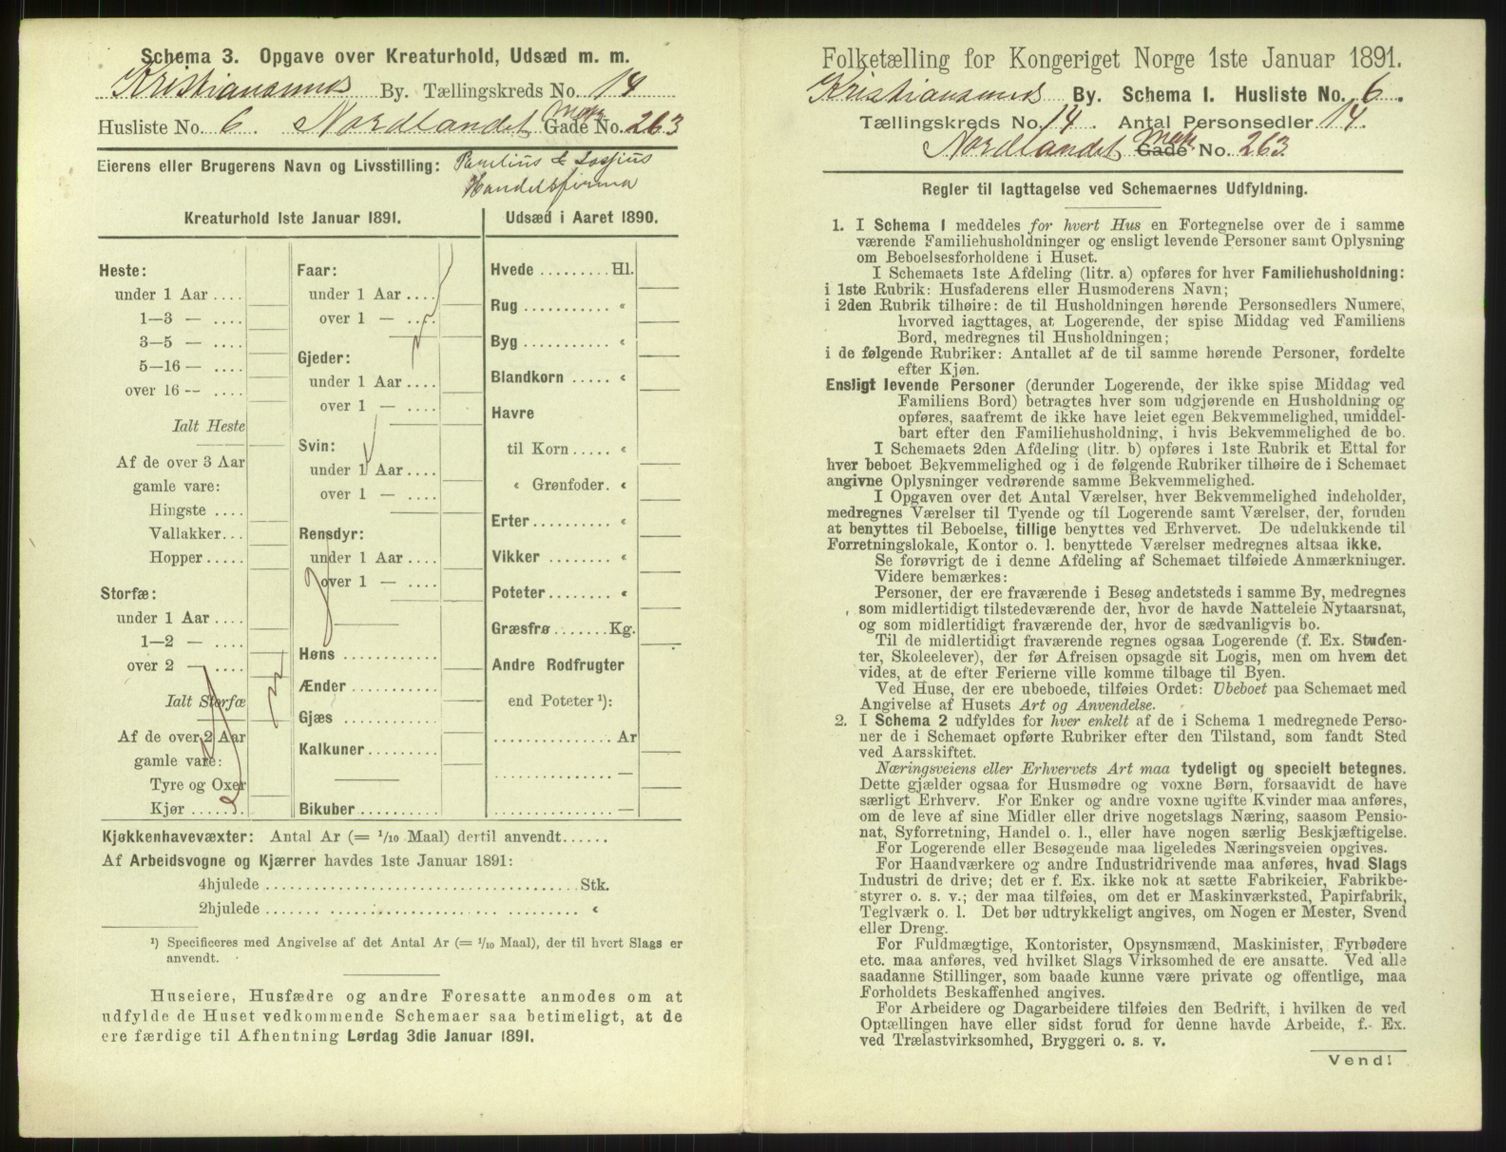 Schema 3. Opgave over Kreaturhold, Udsæd m. m.
Kristianssund By. Tællingskreds No. 14
Husliste No. 6. Nordlandet Matr. Gade No. 263
Eierens eller Brugerens Navn og Livsstilling:
& Lossius
Handelsfirma
Kreaturhold 1ste Januar 1891.
Heste:
under 1 Aar ....
1—3 — ....
3—5 — ....
5—16 — ....
over 16 — ....
Ialt Heste
Af de over 3 Aar
gamle vare:
Hingste ....
Vallakker...
Hopper .....
Storfæ:
under 1 Aar ....
1—2 — ....
over 2 — ....
Ialt Storfæ
Af de over 2 Aar
gamle vare:
Tyre og Oxer
Kjør .......
Faar:
under 1 Aar ....
over 1 — ....
Gjeder:
under 1 Aar ....
over 1 — ....
Svin:
under 1 Aar ....
over 1 — ....
Rensdyr:
under 1 Aar ....
over 1 — ....
Høns ............
Ænder ..........
Gjæs ............
Kalkuner.........
Bikuber ..........
Udsæd i Aaret 1890.
Hvede ......... Hl.
Rug ........... «
Byg ........... «
Blandkorn ..... «
Havre
til Korn ..... «
« Grønfoder. «
Erter........... «
Vikker ........ «
Poteter........ «
Græsfrø.......Kg.
Andre Rodfrugter
end Poteter ¹):
............... Ar
............... —
............... —
Kjøkkenhavevæxter: Antal Ar (= 1/10 Maal) dertil anvendt......
Af Arbeidsvogne og Kjærrer havdes 1ste Januar 1891:
4hjulede ........................................ Stk.
2hjulede ........................................ «
¹) Specificeres med Angivelse af det Antal Ar (= 1/10 Maal), der til hvert Slags er
anvendt.
Huseiere, Husfædre og andre Foresatte anmodes om at
udfylde de Huset vedkommende Schemaer saa betimeligt, at de
ere færdige til Afhentning Lørdag 3die Januar 1891.
Folketælling for Kongeriget Norge 1ste Januar 1891.
Kristianssund By. Schema I. Husliste No. 6.
Tællingskreds No. 14. Antal Personsedler 14.
Nordlandet Matr. Gade No. 263.
Regler til Iagttagelse ved Schemaernes Udfyldning.
1. I Schema I meddeles for hvert Hus en Fortegnelse over de i samme
værende Familiehusholdninger og ensligt levende Personer samt Oplysning
om Beboelsesforholdene i Huset.
I Schemaets 1ste Afdeling (litr. a) opføres for hver Familiehusholdning:
i 1ste Rubrik: Husfaderens eller Husmoderens Navn;
i 2den Rubrik tilhøire: de til Husholdningen hørende Personsedlers Numere,
hvorved iagttages, at Logerende, der spise Middag ved Familiens
Bord, medregnes til Husholdningen;
i de følgende Rubriker: Antallet af de til samme hørende Personer, fordelte
efter Kjøn.
Ensligt levende Personer (derunder Logerende, der ikke spise Middag ved
Familiens Bord) betragtes hver som udgjørende en Husholdning og
opføres, saafremt de ikke have leiet egen Bekvemmelighed, umiddel-
bart efter den Familiehusholdning, i hvis Bekvemmelighed de bo.
I Schemaets 2den Afdeling (litr. b) opføres i 1ste Rubrik et Ettal for
hver beboet Bekvemmelighed og i de følgende Rubriker tilhøire de i Schemaet
angivne Oplysninger vedrørende samme Bekvemmelighed.
I Opgaven over det Antal Værelser, hver Bekvemmelighed indeholder,
medregnes Værelser til Tyende og til Logerende samt Værelser, der, foruden
at benyttes til Beboelse, tillige benyttes ved Erhvervet. De udelukkende til
Forretningslokale, Kontor o. l. benyttede Værelser medregnes altsaa ikke.
Se forøvrigt de i denne Afdeling af Schemaet tilføiede Anmærkninger.
Videre bemærkes:
Personer, der ere fraværende i Besøg andetsteds i samme By, medregnes
som midlertidigt tilstedeværende der, hvor de havde Natteleie Nytaarsnat,
og som midlertidigt fraværende der, hvor de sædvanligvis bo.
Til de midlertidigt fraværende regnes ogsaa Logerende (f. Ex. Studen-
ter, Skoleelever), der før Afreisen opsagde sit Logis, men om hvem det
vides, at de efter Ferierne ville komme tilbage til Byen.
Ved Huse, der ere ubeboede, tilføies Ordet: Ubeboet paa Schemaet med
Angivelse af Husets Art og Anvendelse.
2. I Schema 2 udfyldes for hver enkelt af de i Schema 1 medregnede Perso-
ner de i Schemaet opførte Rubriker efter den Tilstand, som fandt Sted
ved Aarsskiftet.
Næringsveiens eller Erhvervets Art maa tydeligt og specielt betegnes.
Dette gjælder ogsaa for Husmødre og voxne Børn, forsaavidt de have
særligt Erhverv. For Enker og andre voxne ugifte Kvinder maa anføres,
om de leve af sine Midler eller drive nogetslags Næring, saasom Pensio-
nat, Syforretning, Handel o. l., eller have nogen særlig Beskjæftigelse.
For Logerende eller Besøgende maa ligeledes Næringsveien opgives.
For Haandværkere og andre Industridrivende maa anføres, hvad Slags
Industri de drive; det er f. Ex. ikke nok at sætte Fabrikeier, Fabrikbe-
styrer o. s. v.; der maa tilføies, om det er Maskinværksted, Papirfabrik,
Teglværk o. l. Det bør udtrykkeligt angives, om Nogen er Mester, Svend
eller Dreng.
For Fuldmægtige, Kontorister, Opsynsmænd, Maskinister, Fyrbødere
etc. maa anføres, ved hvilket Slags Virksomhed de ere ansatte. Ved alle
saadanne Stillinger, som baade kunne være private og offentlige, maa
Forholdets Beskaffenhed angives.
For Arbeidere og Dagarbeidere tilføies den Bedrift, i hvilken de ved
Optællingen have eller sidst forud for denne havde Arbeide, f. Ex.
ved Trælastvirksomhed, Bryggeri o. s. v.
Vend!